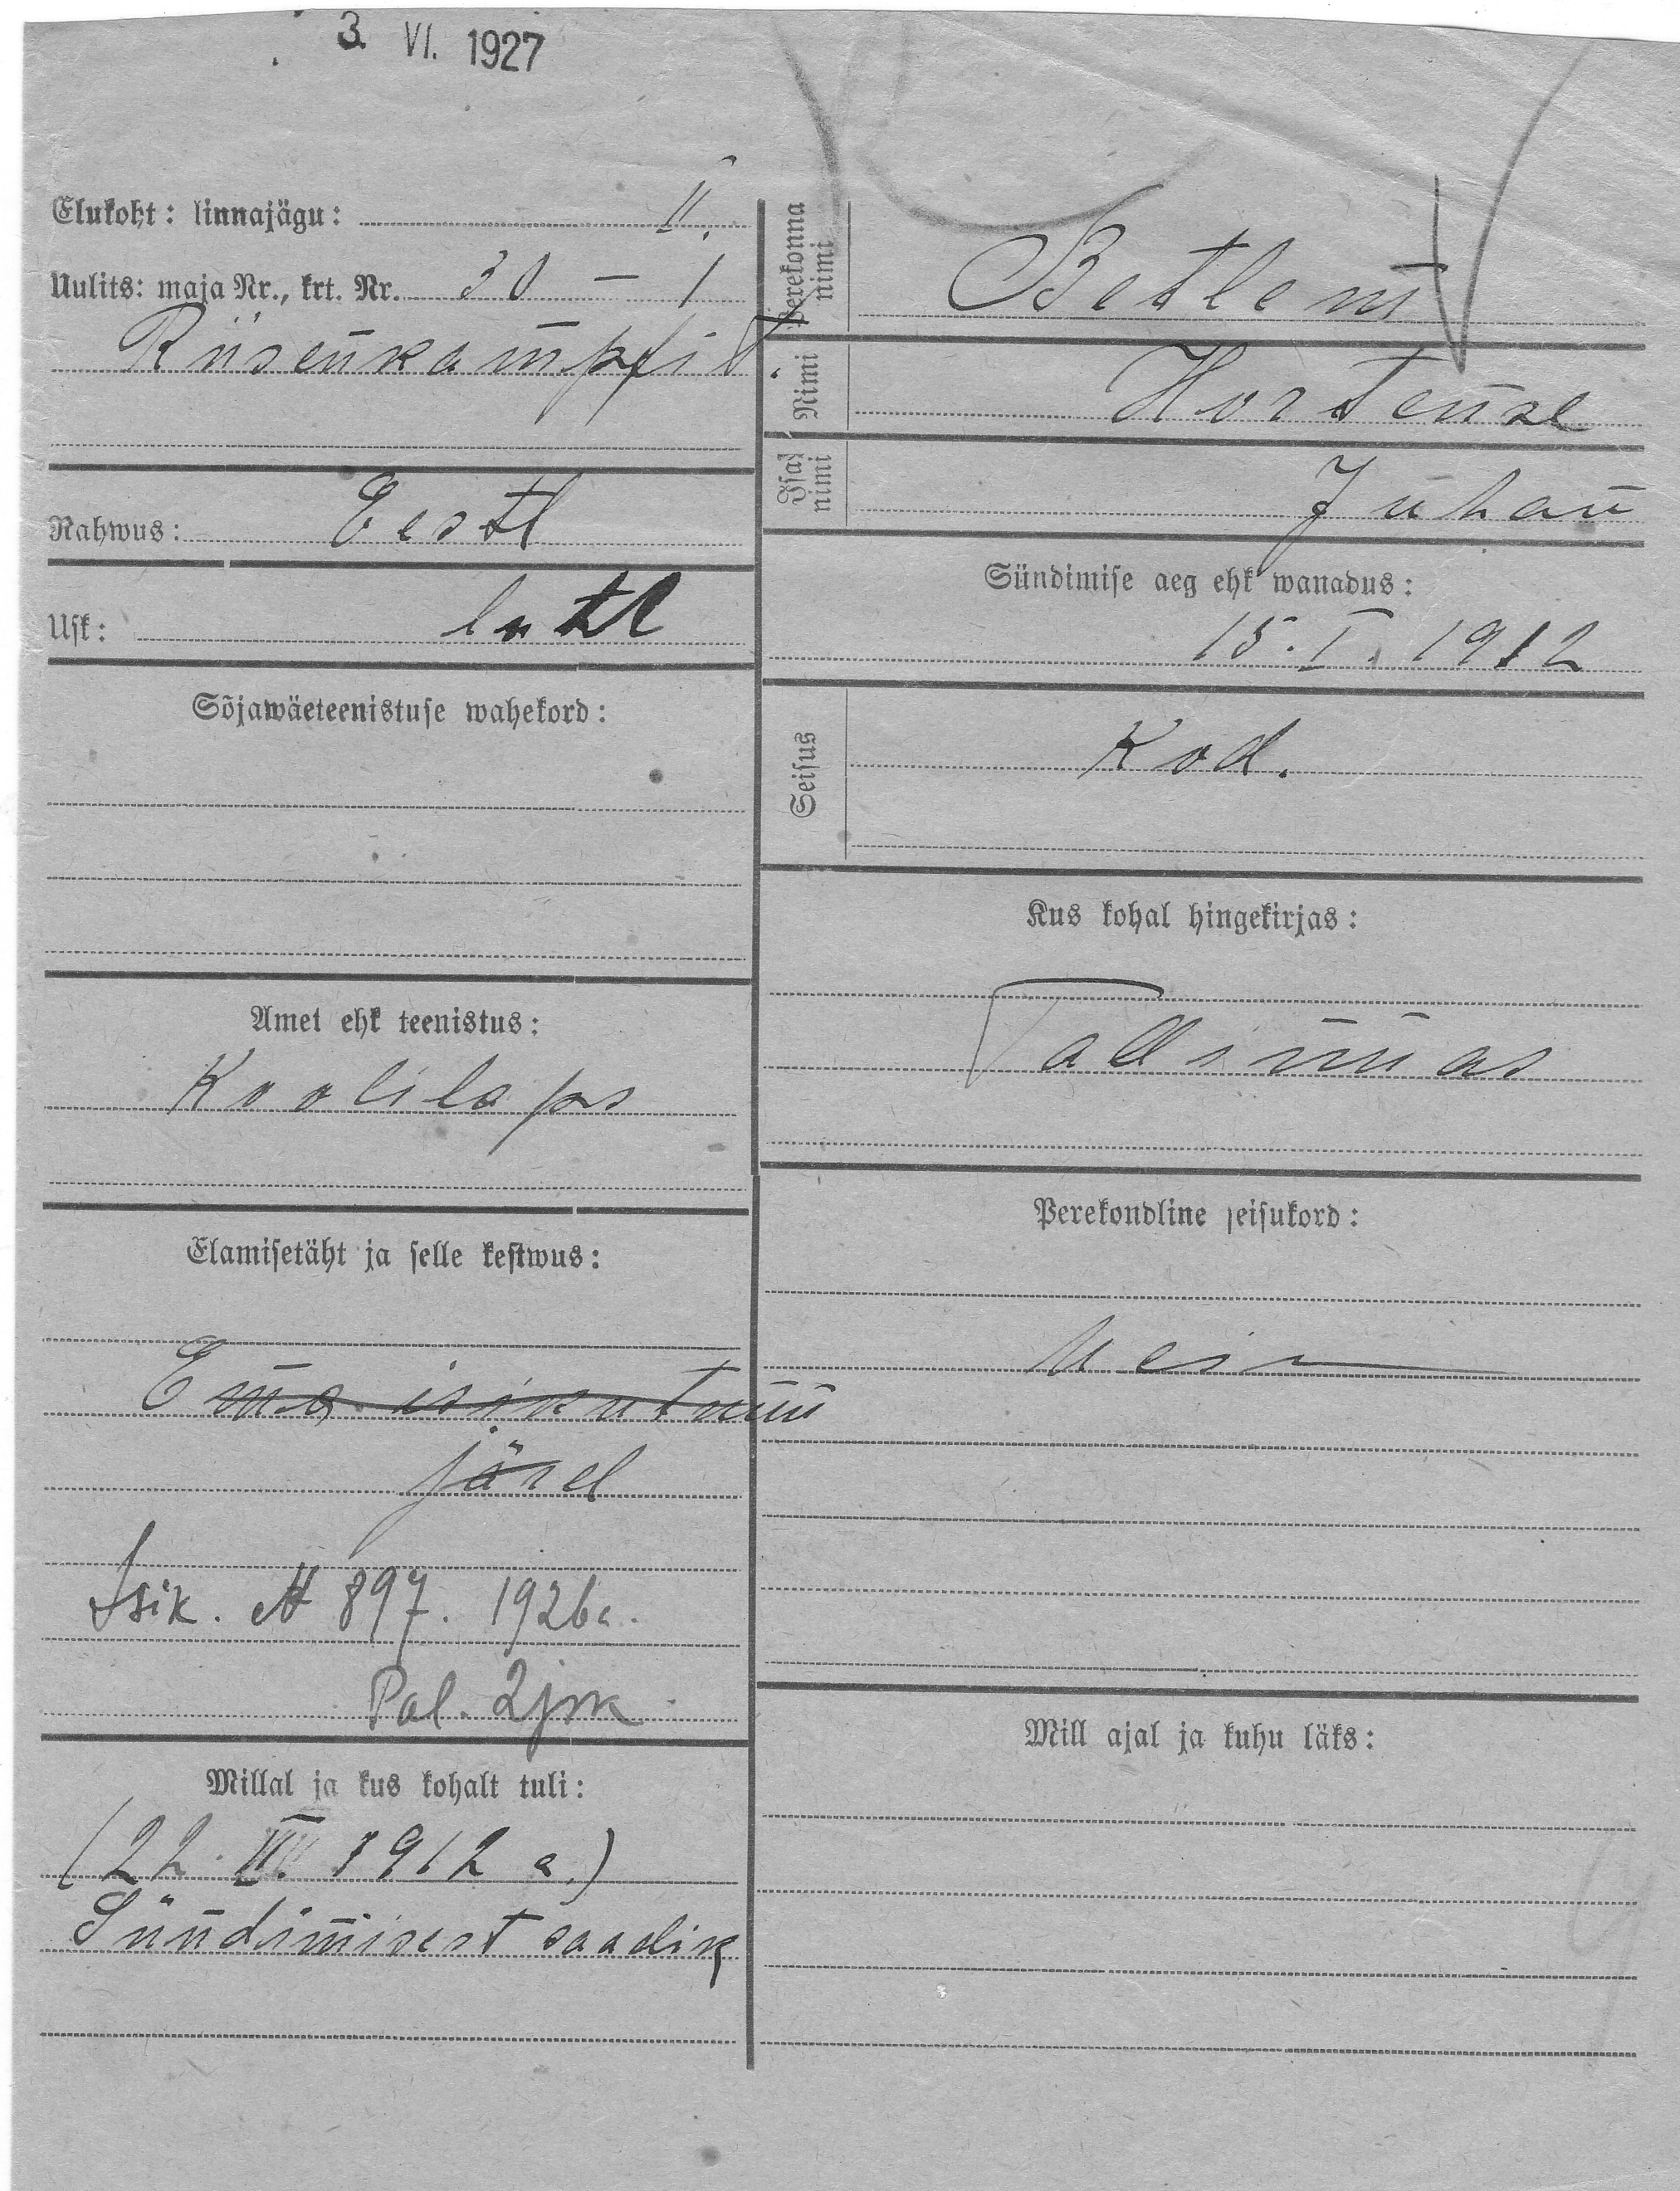 3. VI. 1927
Elukoht: linnajägu: II.
Uulits: maja Nr., krt. Nr. 30 – 1
Riisenkampfi t.
Rahwus: Eestl
Usk: lutl
Sõjawäeteenistuse wahekord:
Amet ehk teenistus:
Koolilaps
Elamisetäht ja selle kestwus:
Ema isikutunn
järel
Isik. № 897. 1926 a.
Pal. 2 jsk
Millal ja kus kohalt tuli:
(22. 1912 a.)
Sündimisest saadik
Perekonna nimi Betlem
Nimi Hortense
Isa nimi Juhan
Sündimise aeg ehk wanadus:
15. I. 1912
Seisus Kod.
Kus kohal hingekirjas:
Tallinnas
Perekondline seisukord:
Mill ajal ja kuhu läks: